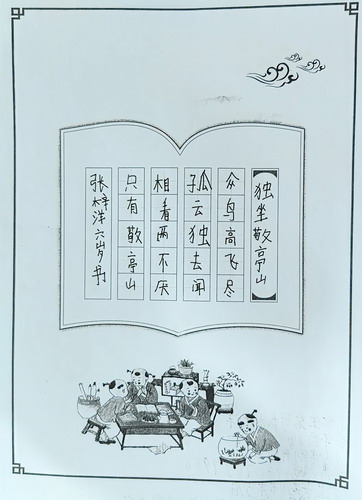 独坐敬亭山
众鸟高飞尽
孤云独去闻
相看两不厌
只有敬亭山
张梓洋六岁书